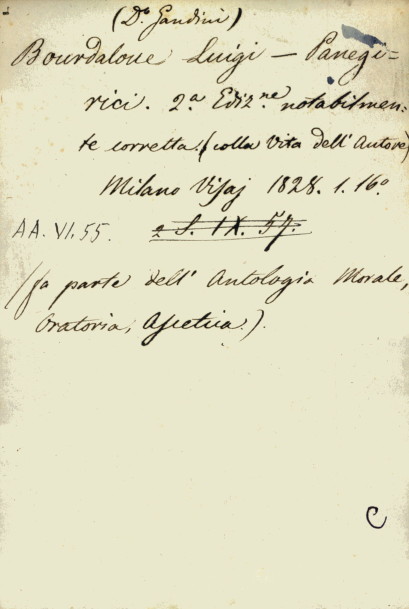 (D.º Gandini)
Bourdaloue Luigi — Panegi=
rici. 2.ª Ediz.ne notabilmen=
te corretta (colla Vita dell' Autore)
Milano Visaj 1828. 1. 16º
AA. VI. 55. 2 S. IX. 57.
(fa parte dell' Antologia Morale,
Oratoria, Ascetica.)
C